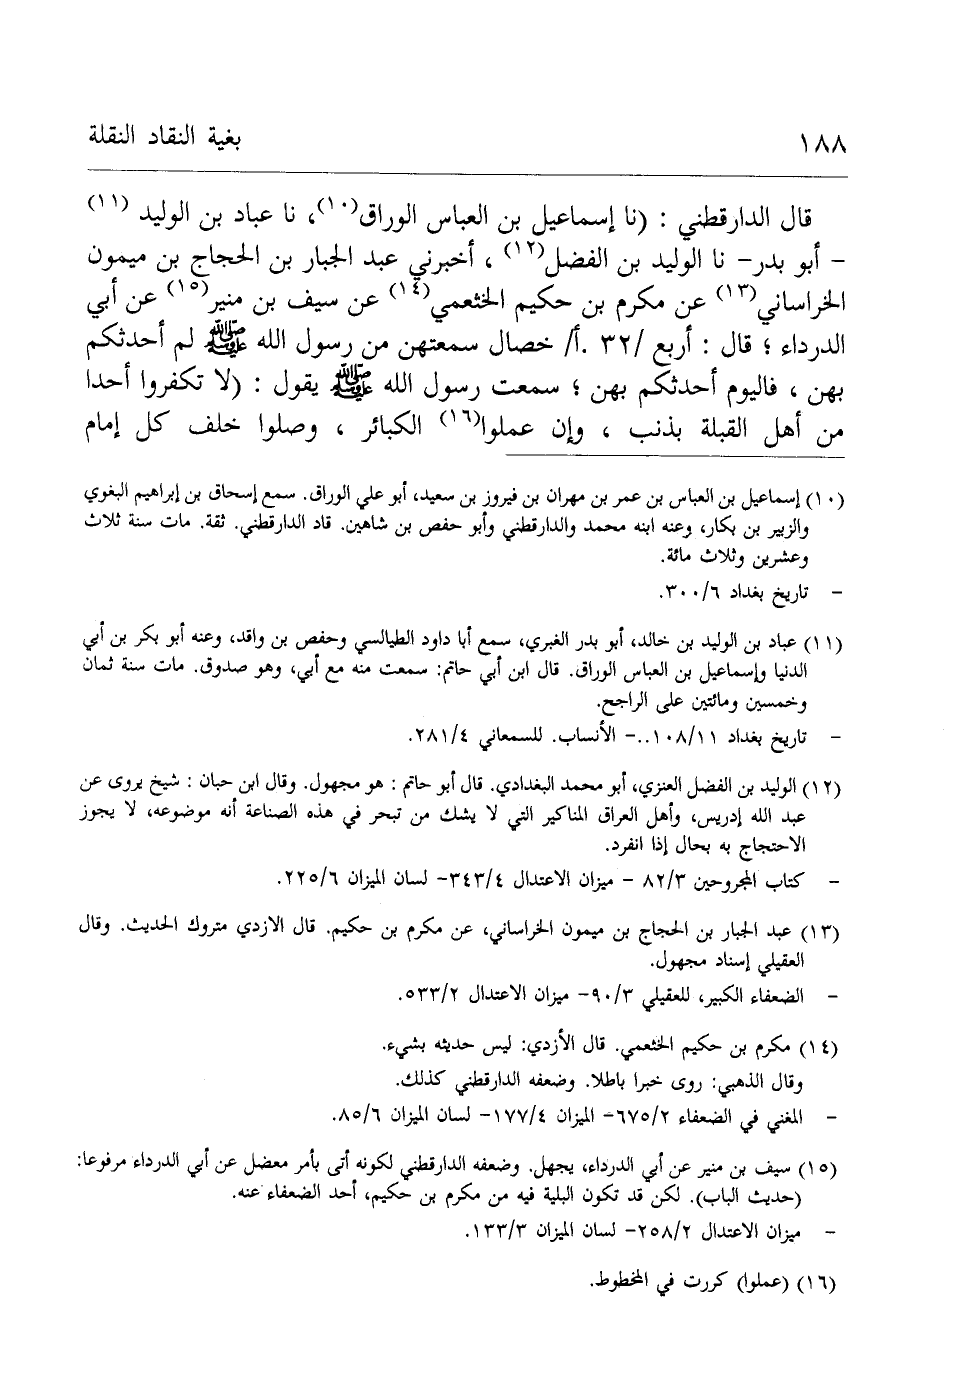 ١٨٨ بغية النقاد النقلة
قال الدارقطني : (نا إسماعيل بن العباس الوراق(١٠)، نا عباد بن الوليد (١١)
– أبو بدر– نا الوليد بن الفضل(١٢) ، أخبرني عبد الجبار بن الحجاج بن ميمون
الخراساني(١٣) عن مكرم بن حكيم الخثعمي(١٤) عن سيف بن منير(١٥) عن أبي
الدرداء ؛ قال : أربع /٣٢ .أ/ خصال سمعتهن من رسول الله ﷺ لم أحدثكم
بهن ، فاليوم أحدثكم بهن ؛ سمعت رسول الله ﷺ يقول : (لا تكفروا أحدا
من أهل القبلة بذنب ، وإن عملوا(١٦) الكبائر ، وصلوا خلف كل إمام
(١٠) إسماعيل بن العباس بن عمر بن مهران بن فيروز بن سعيد، أبو علي الوراق. سمع إسحاق بن إبراهيم البغوي
والزبير بن بكار، وعنه ابنه محمد والدارقطني وأبو حفص بن شاهين. قاد الدارقطني. ثقة. مات سنة ثلاث
وعشرين وثلاث مائة.
– تاريخ بغداد ٣٠٠/٦.
(١١) عباد بن الوليد بن خالد، أبو بدر الغبري، سمع أبا داود الطيالسي وحفص بن واقد، وعنه أبو بكر بن أبي
الدنيا وإسماعيل بن العباس الوراق. قال ابن أبي حاتم: سمعت منه مع أبي، وهو صدوق. مات سنة ثمان
وخمسين ومائتين على الراجح.
– تاريخ بغداد ١٠٨/١١..– الأنساب. للسمعاني ٢٨١/٤.
(١٢) الوليد بن الفضل العنزي، أبو محمد البغدادي. قال أبو حاتم : هو مجهول. وقال ابن حبان : شيخ يروى عن
عبد الله إدريس، وأهل العراق المناكير التي لا يشك من تبحر في هذه الصناعة أنه موضوعه، لا يجوز
الاحتجاج به بحال إذا انفرد.
– كتاب المجروحين ٨٢/٣ – ميزان الاعتدال ٣٤٣/٤– لسان الميزان ٢٢٥/٦.
(١٣) عبد الجبار بن الحجاج بن ميمون الخراساني، عن مكرم بن حكيم. قال الازدي متروك الحديث. وقال
العقيلي إسناد مجهول.
– الضعفاء الكبير، للعقيلي ٩٠/٣– ميزان الاعتدال ٥٣٣/٢.
(١٤) مكرم بن حكيم الخثعمي. قال الأزدي: ليس حديثه بشيء.
وقال الذهبي: روى خبرا باطلا. وضعفه الدارقطني كذلك.
– المغني في الضعفاء ٦٧٥/٢– الميزان ١٧٧/٤– لسان الميزان ٨٥/٦.
(١٥) سيف بن منير عن أبي الدرداء، يجهل. وضعفه الدارقطني لكونه أتى بأمر معضل عن أبي الدرداء مرفوعا:
(حديث الباب). لكن قد تكون البلية فيه من مكرم بن حكيم، أحد الضعفاء عنه.
– ميزان الاعتدال ٢٥٨/٢– لسان الميزان ١٣٣/٣.
(١٦) (عملوا) كررت في المخطوط.